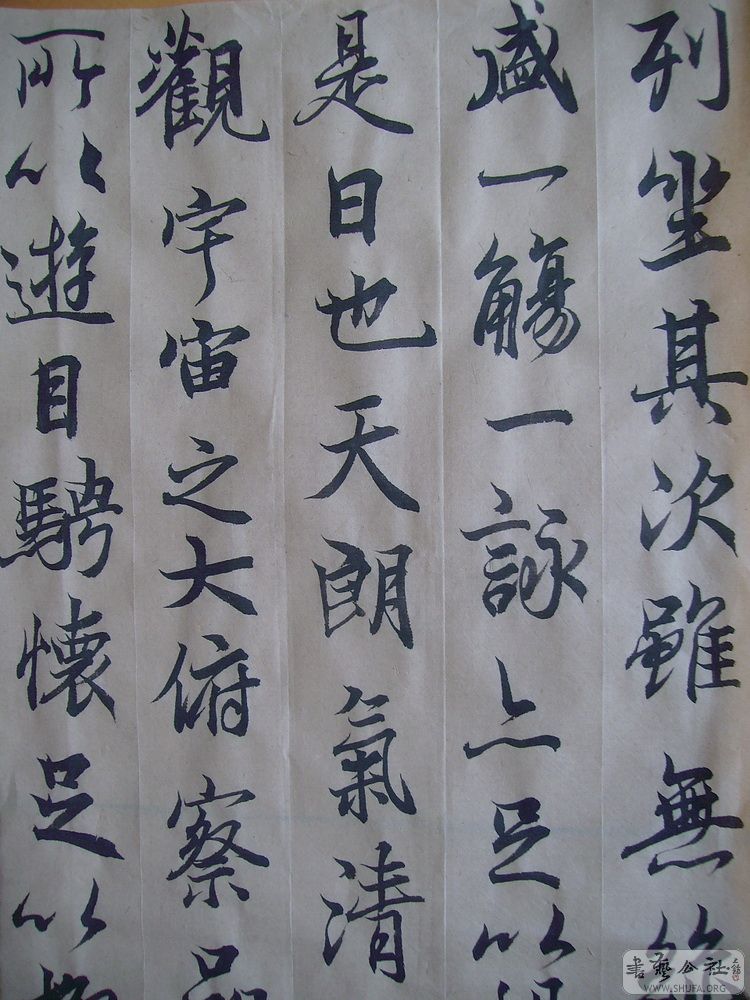 列坐其次雖無
盛一觴一詠亦足以
是日也天朗氣清
觀宇宙之大俯察品
所以遊目騁懷足以極
書藝公社
WWW.SHUFA.ORG